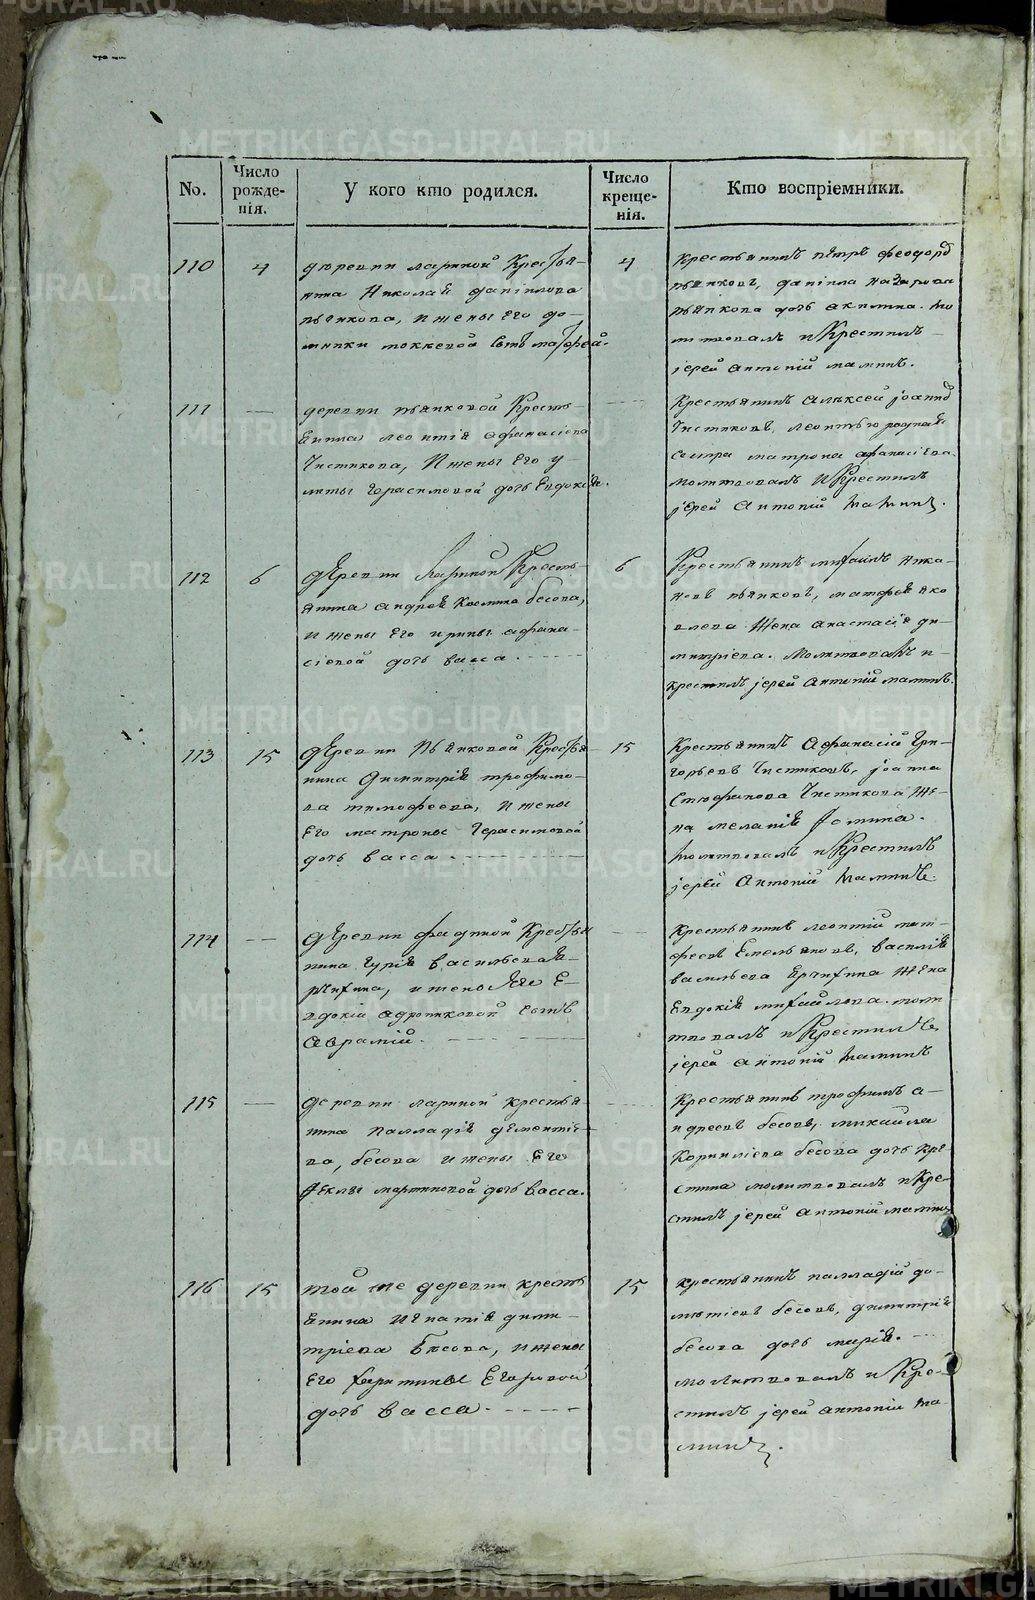 No.
Число
рожде-
нія.
У кого кто родился.
Число
креще-
нія.
Кто воспріемники.
110
4
деревни лариной Крестья-
нина Николая даніилова
пьянкова, и жены Его до-
мники моккевой сынъ матфей.
4
Крестьянинъ петръ феодоро
пьянковъ, даніила назарова
пьянкова дочь акилина. мо
литвовалъ и Крестилъ
іерей антоній маминъ.
111
деревни пьянковой Кресть-
янина леонтія афанасіева
Чистякова, и жены Его у-
литы Герасимовой дочь Евдокія.
Крестьянинъ алѣксей іоанно
Чистяковъ, леонтью родная
сестра матрона афанасіева
молитвовалъ и Крестилъ
іерей антоній маминъ.
112
6
деревни Лариной Кресть-
янина андрея космина бесова,
и жены Его ирины афана-
сіевой дочь васса.
6
Крестьянинъ михаилъ ника-
новъ пьянковъ, матфея яко
влева жена анастасія ди-
митріева. молитвовалъ и
крестилъ іерей антоній маминъ.
113
15
деревни пьянковой Крестья
нина димитрія трофимо-
ва тимофеева, и жены
его матроны Герасимовой
дочь васса
15
Крестьянинъ афанасій Гри-
горьевъ Чистяковъ, іоанна
Стефанова Чистякова же-
на меланія фомина.
молитвовалъ и Крестилъ
іерей антоній маминъ.
114
деревни фадиной Крестья
нина Гурія васильева Е-
рчихина, и жены его Е-
вдокіи адрониковой сынъ
аврамій.
Крестьянинъ леонтій мат-
феевъ Емельяновъ, василія
васильева Ерчихина жена
Евдокія михайлова моли
твовалъ и Крестилъ
іерей антоній маминъ
115
деревни лариной крестья
нина палладія дементіе-
ва, бесова и жены Его
феклы мартиновой дочь васса.
Крестьянинъ трофимъ а-
ндреевъ бесовъ, михайла
Корниліева бесова дочь Кри
стина молитвовалъ и Кре-
стилъ іерей антоній маминъ
116
15
той же деревни кресть
янина игнатія дими-
тріева бесова, и жены
его харитины Егоровой
дочь васса
15
крестьянинъ палладій де-
ментіевъ бесовъ, димитрія
бесова дочь марія.
молитвовалъ и Кре-
стилъ іерей антоній ма-
минъ.
METRIKI.GASO-URAL.RU